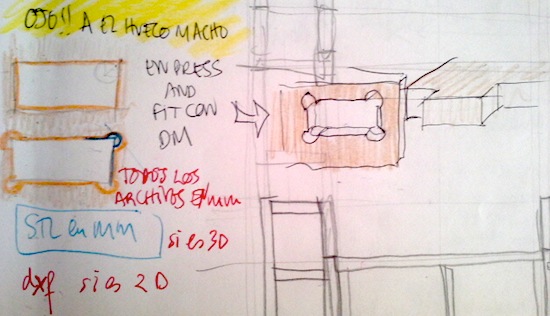 OJO!! A EL HUECO MACHO
EN PRESS
AND
FIT CON
DM
TODOS LOS
ARCHIVOS EN mm
STL en MM
si es 3D
dxf si es 2D